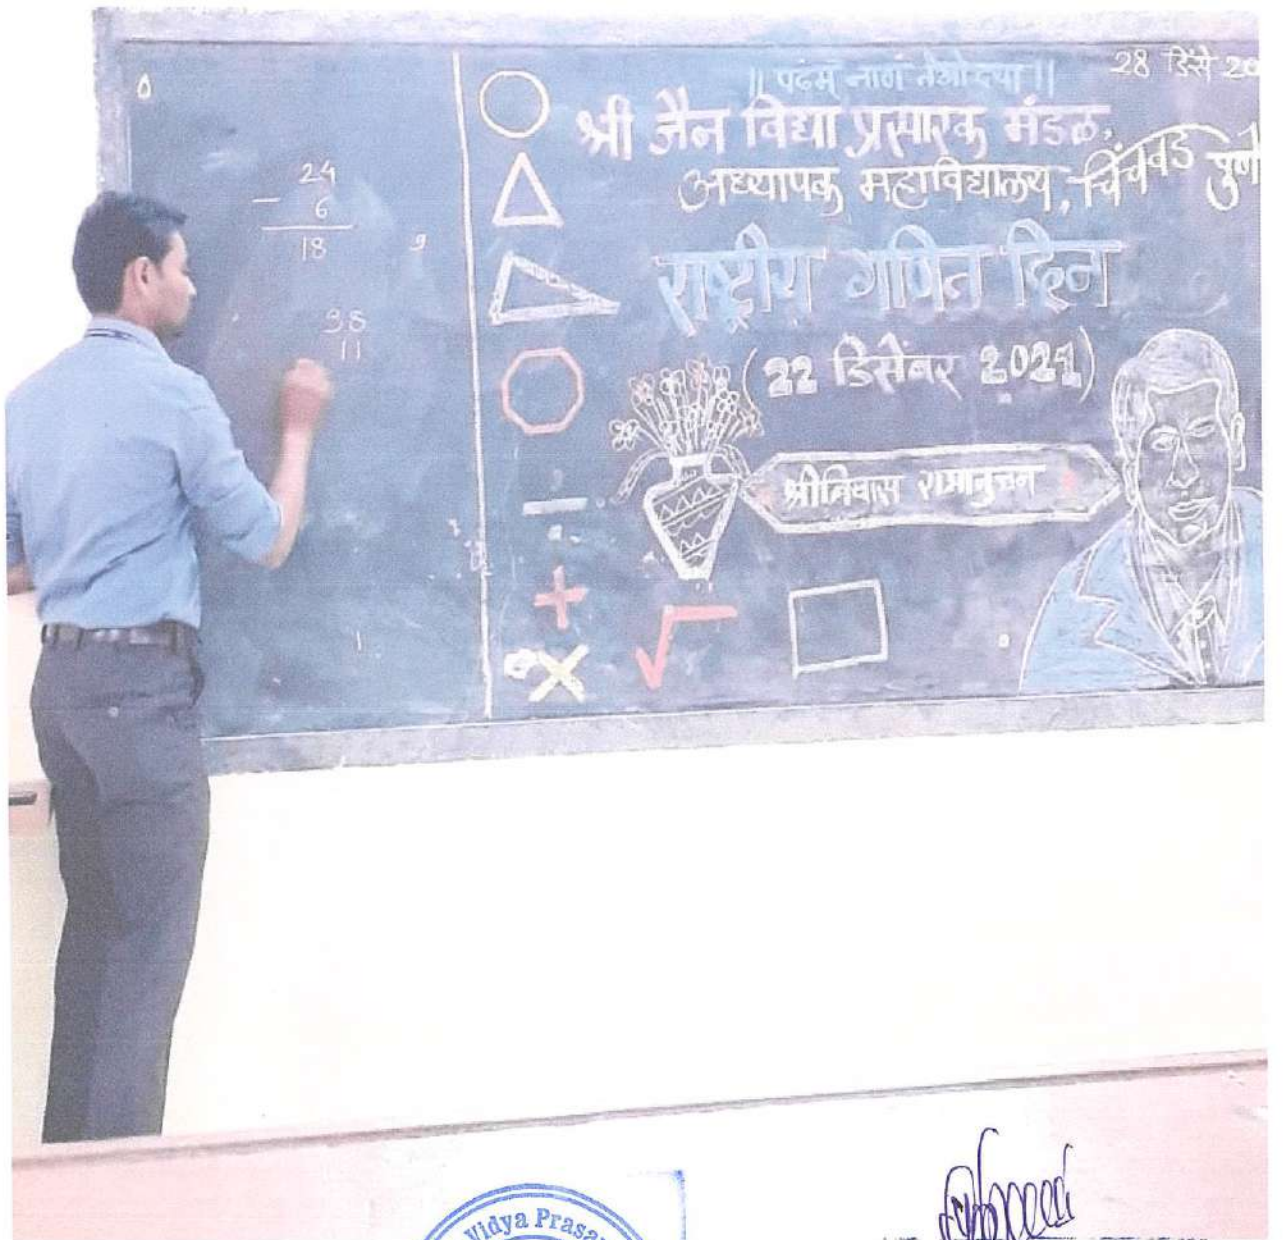 24
- 6
18
98
11
28 डिसें 20
|| पढमं नाणं तओ दया ||
श्री जैन विद्या प्रसारक मंडळ,
अध्यापक महाविद्यालय, चिंचवड पुणे
राष्ट्रीय गणित दिन
(22 डिसेंबर 2021)
श्रीनिवास रामानुजन
Vidya Prasa